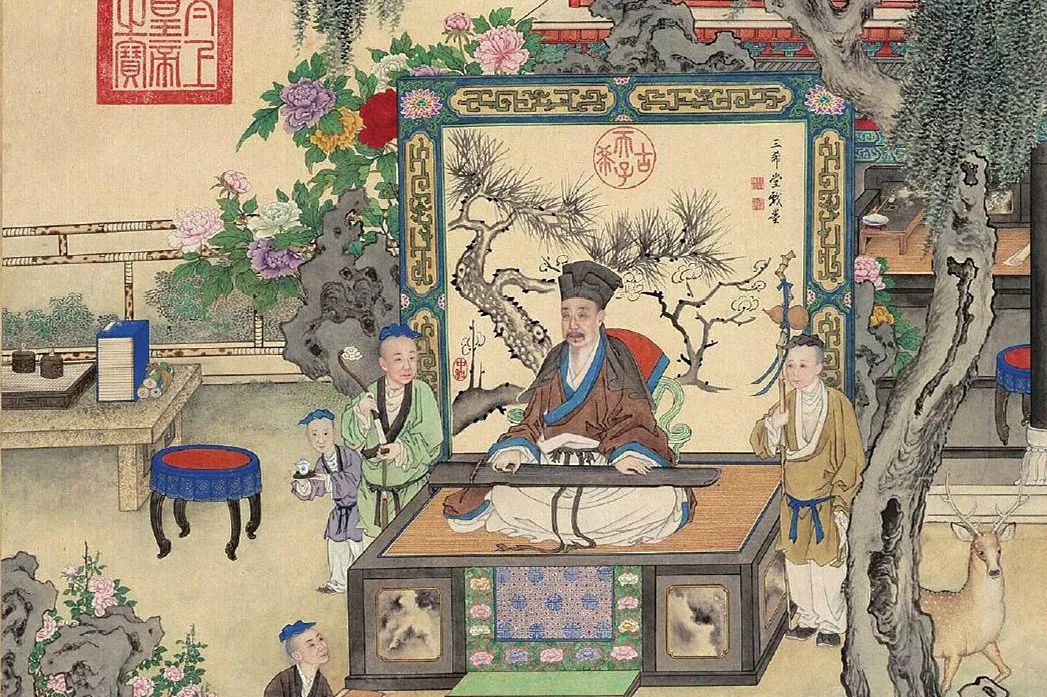 太上
皇帝
之寶
古希天子
三希堂戲墨